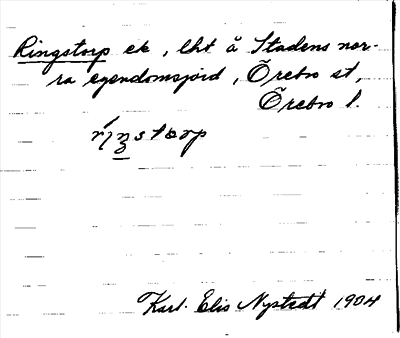 Ringstorp ek, lht å Stadens nor-
ra egendomsjord, Örebro st,
Örebro l.
rı́ŋstorp
Karl-Elis Nystedt 1904